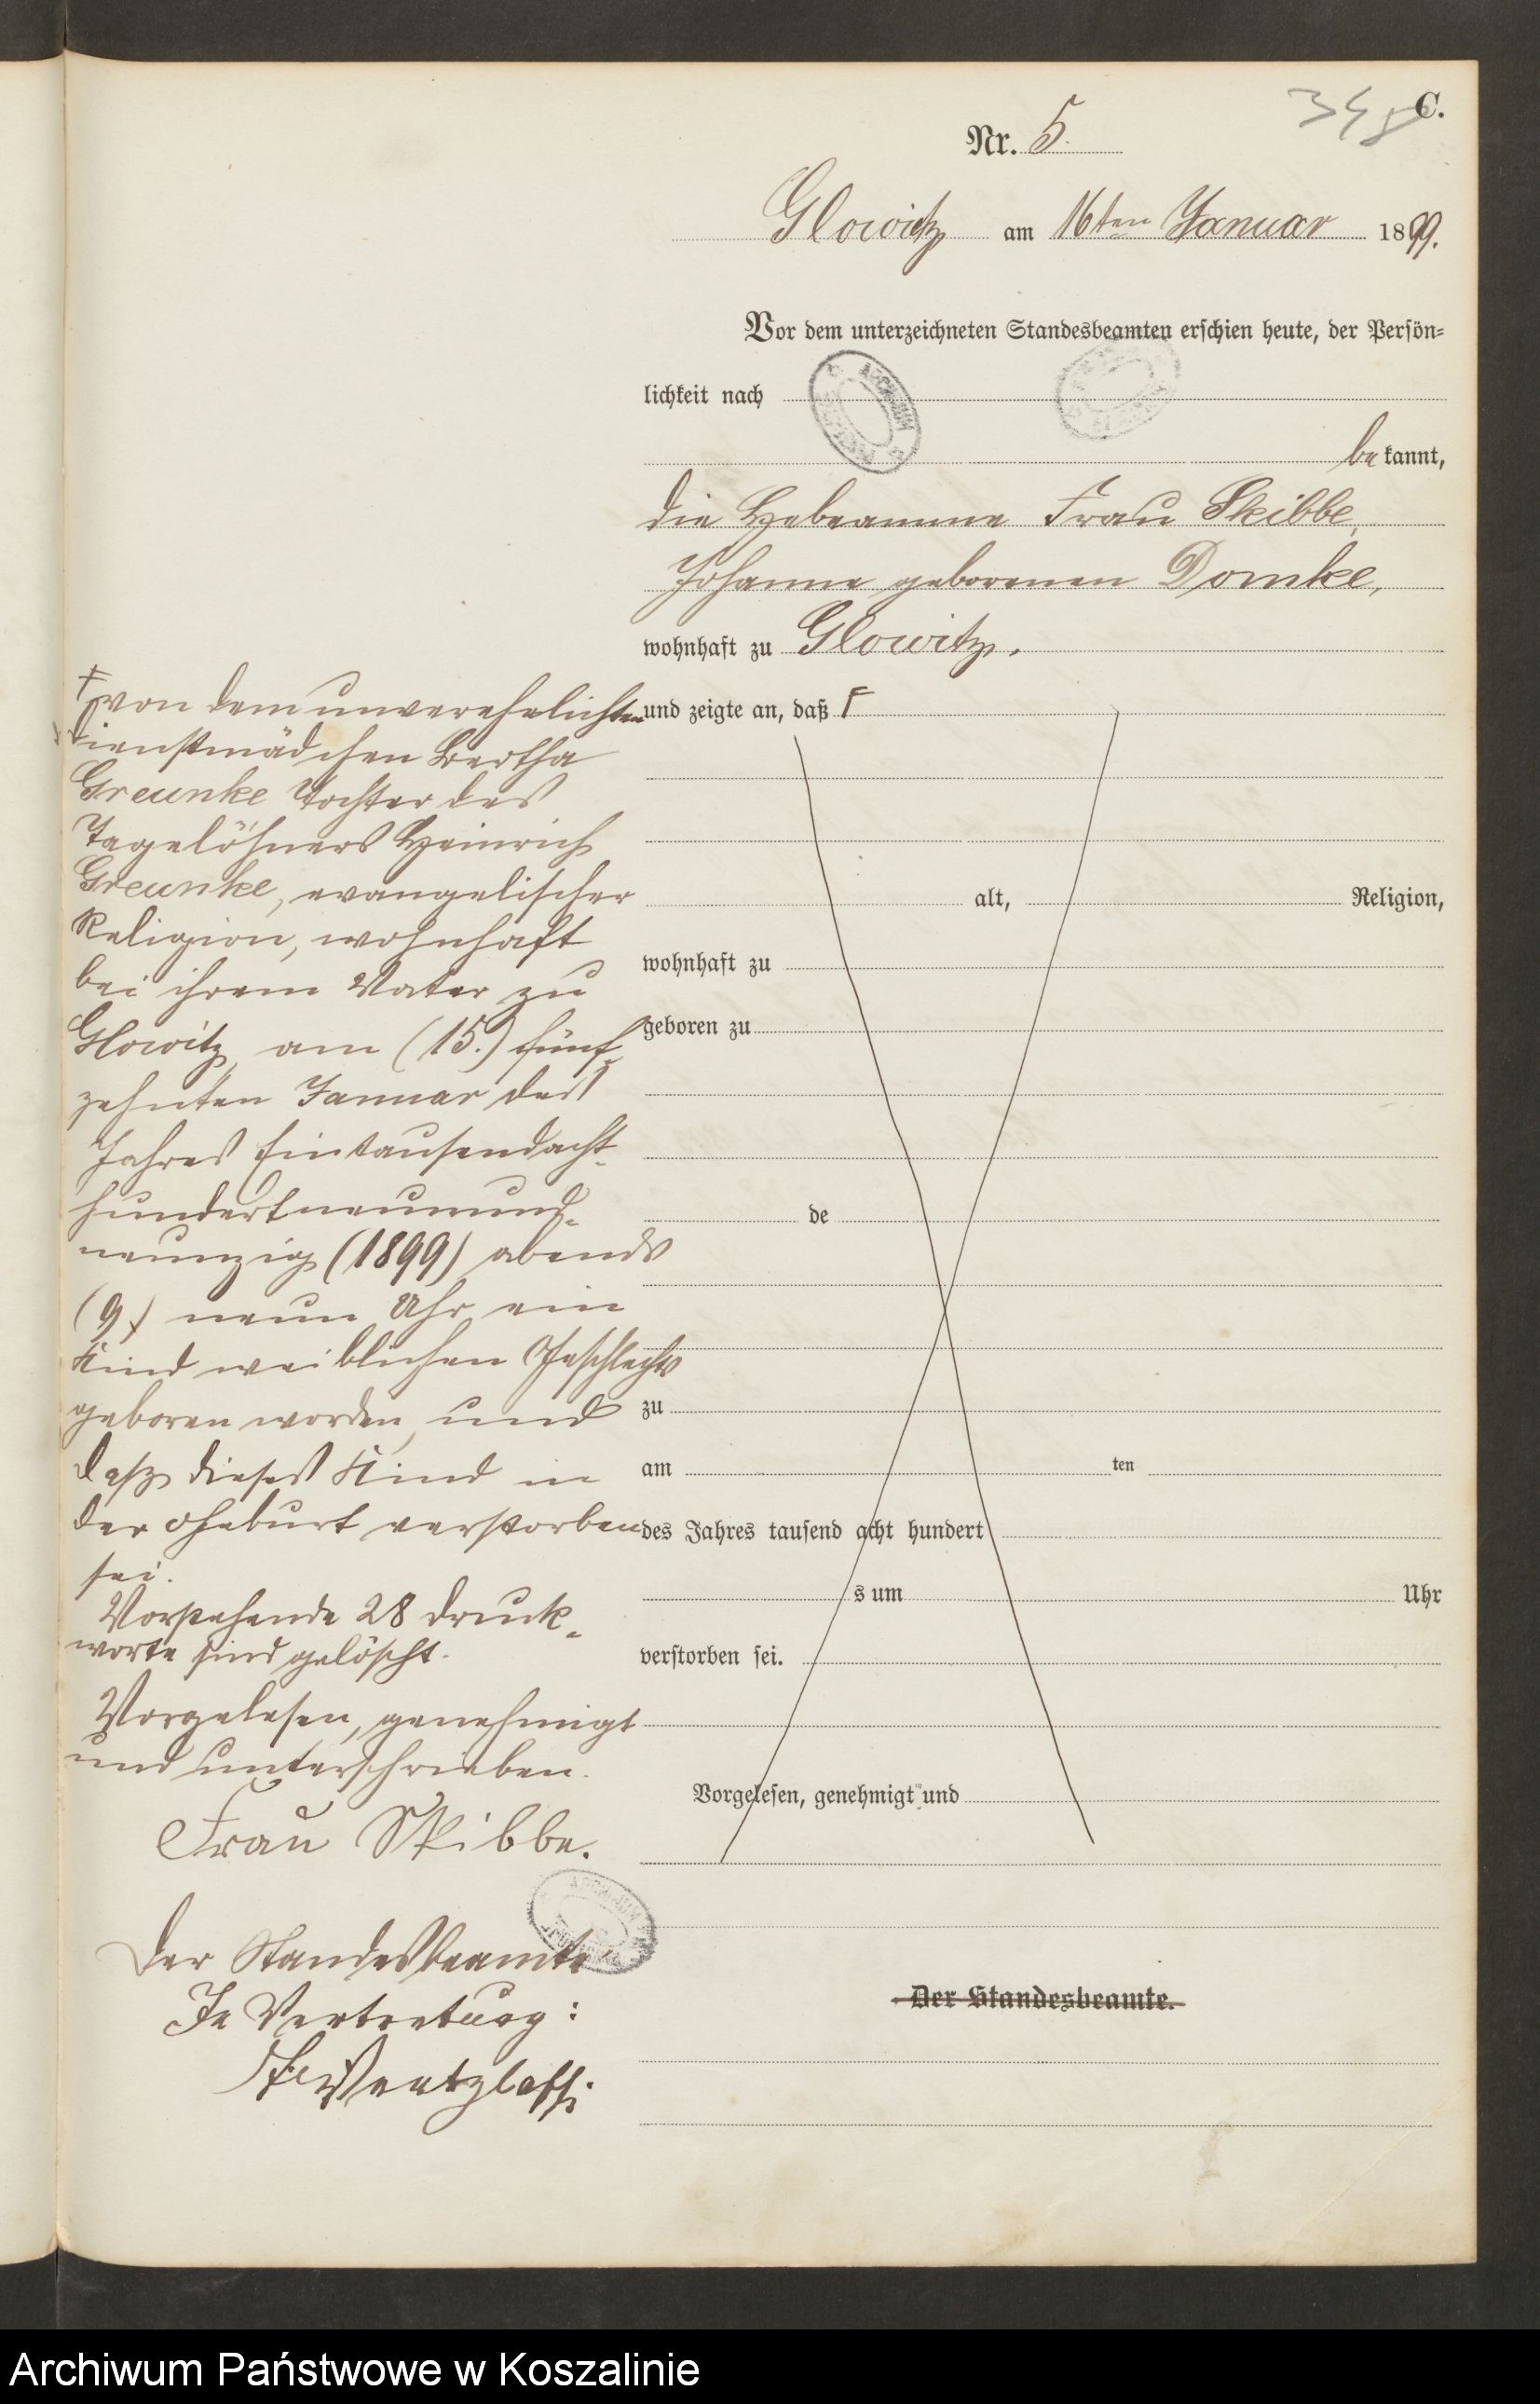 C.
Nr. 5.
Glowitz am 16ten Januar 1899.
Vor dem unterzeichneten Standesbeamten erschien heute, der Persön=
lichkeit nach
bekannt,
die Hebeamme Frau Skibbe,
Johanne geborenen Domke,
wohnhaft zu Glowitz.
und zeigte an, daß
von dem unverehelichten
Dienstmädchen Bertha
Greunke Tochter des
Tagelöhners Heinrich
Greunke, evangelischer
Religion, wohnhaft
bei ihrem Vater zu
Glowitz, am (15.) fünf-
zehnten Januar des
Jahres Eintausendacht-
hundertneunund-
neunzig (1899) abends
(9) neun Uhr ein
Kind weiblichen Geschlechts
geboren worden, und
daß dieses Kind in
der Geburt verstorben
sei.
Vorstehende 28 Druck-
worte sind gelöscht.
Vorgelesen, genehmigt
und unterschrieben.
Frau Skibbe.
Der Standesbeamte
In Vertretung:
alt, Religion,
wohnhaft zu
geboren zu
de
zu
am ten
des Jahres tausend acht hundert
s um Uhr
verstorben sei.
Vorgelesen, genehmigt und
Der Standesbeamte.
Archiwum Państwowe w Koszalinie